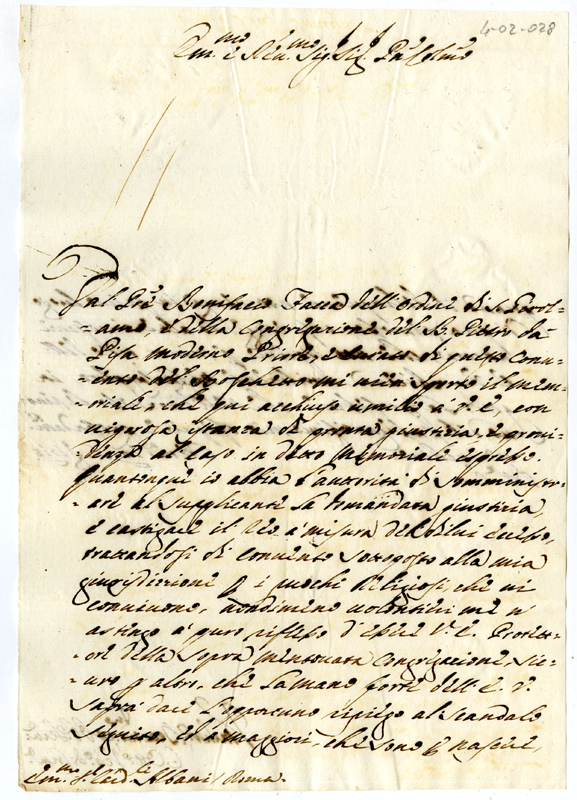 4-02-028
Em.mo e Rev.mo Sig.r Sig.r P̃ne Colmo
Dal P̃re Bonifacio Facca dell'ordine di S. Girol-
-amo, e della Congregazione del B. Pietro da
Pisa moderno Priore, e Curato di questo Conv-
-ento del Boschetto mi vien sporto il mem-
-oriale, che qui acchiuso umilio à V. E., con
vigorosa istanza di pronta giustizia, e provi-
denza al caso in detto Memoriale espresso.
Quantunque io abbia l'autorità di somministr-
-are al supplicante la dimandata giustizia,
e castigare il Reo à misura del di lui eccesso,
trattandosi di Convento sottoposto alla mia
giurisdizione p i puochi Religiosi, che vi
convivono, nondimeno volontieri me n'
astengo à puro riflesso d'essere V. E. Protett-
-ore della sopra mentovata Congregazione, sic-
-uro p altro, che la mano forte dell'E. V.
saprà dare l'opportuno ripiego al scandalo
seguito, et a maggiori, che sono p nascere,
Em.mo S.r Card.le Albani / Roma.